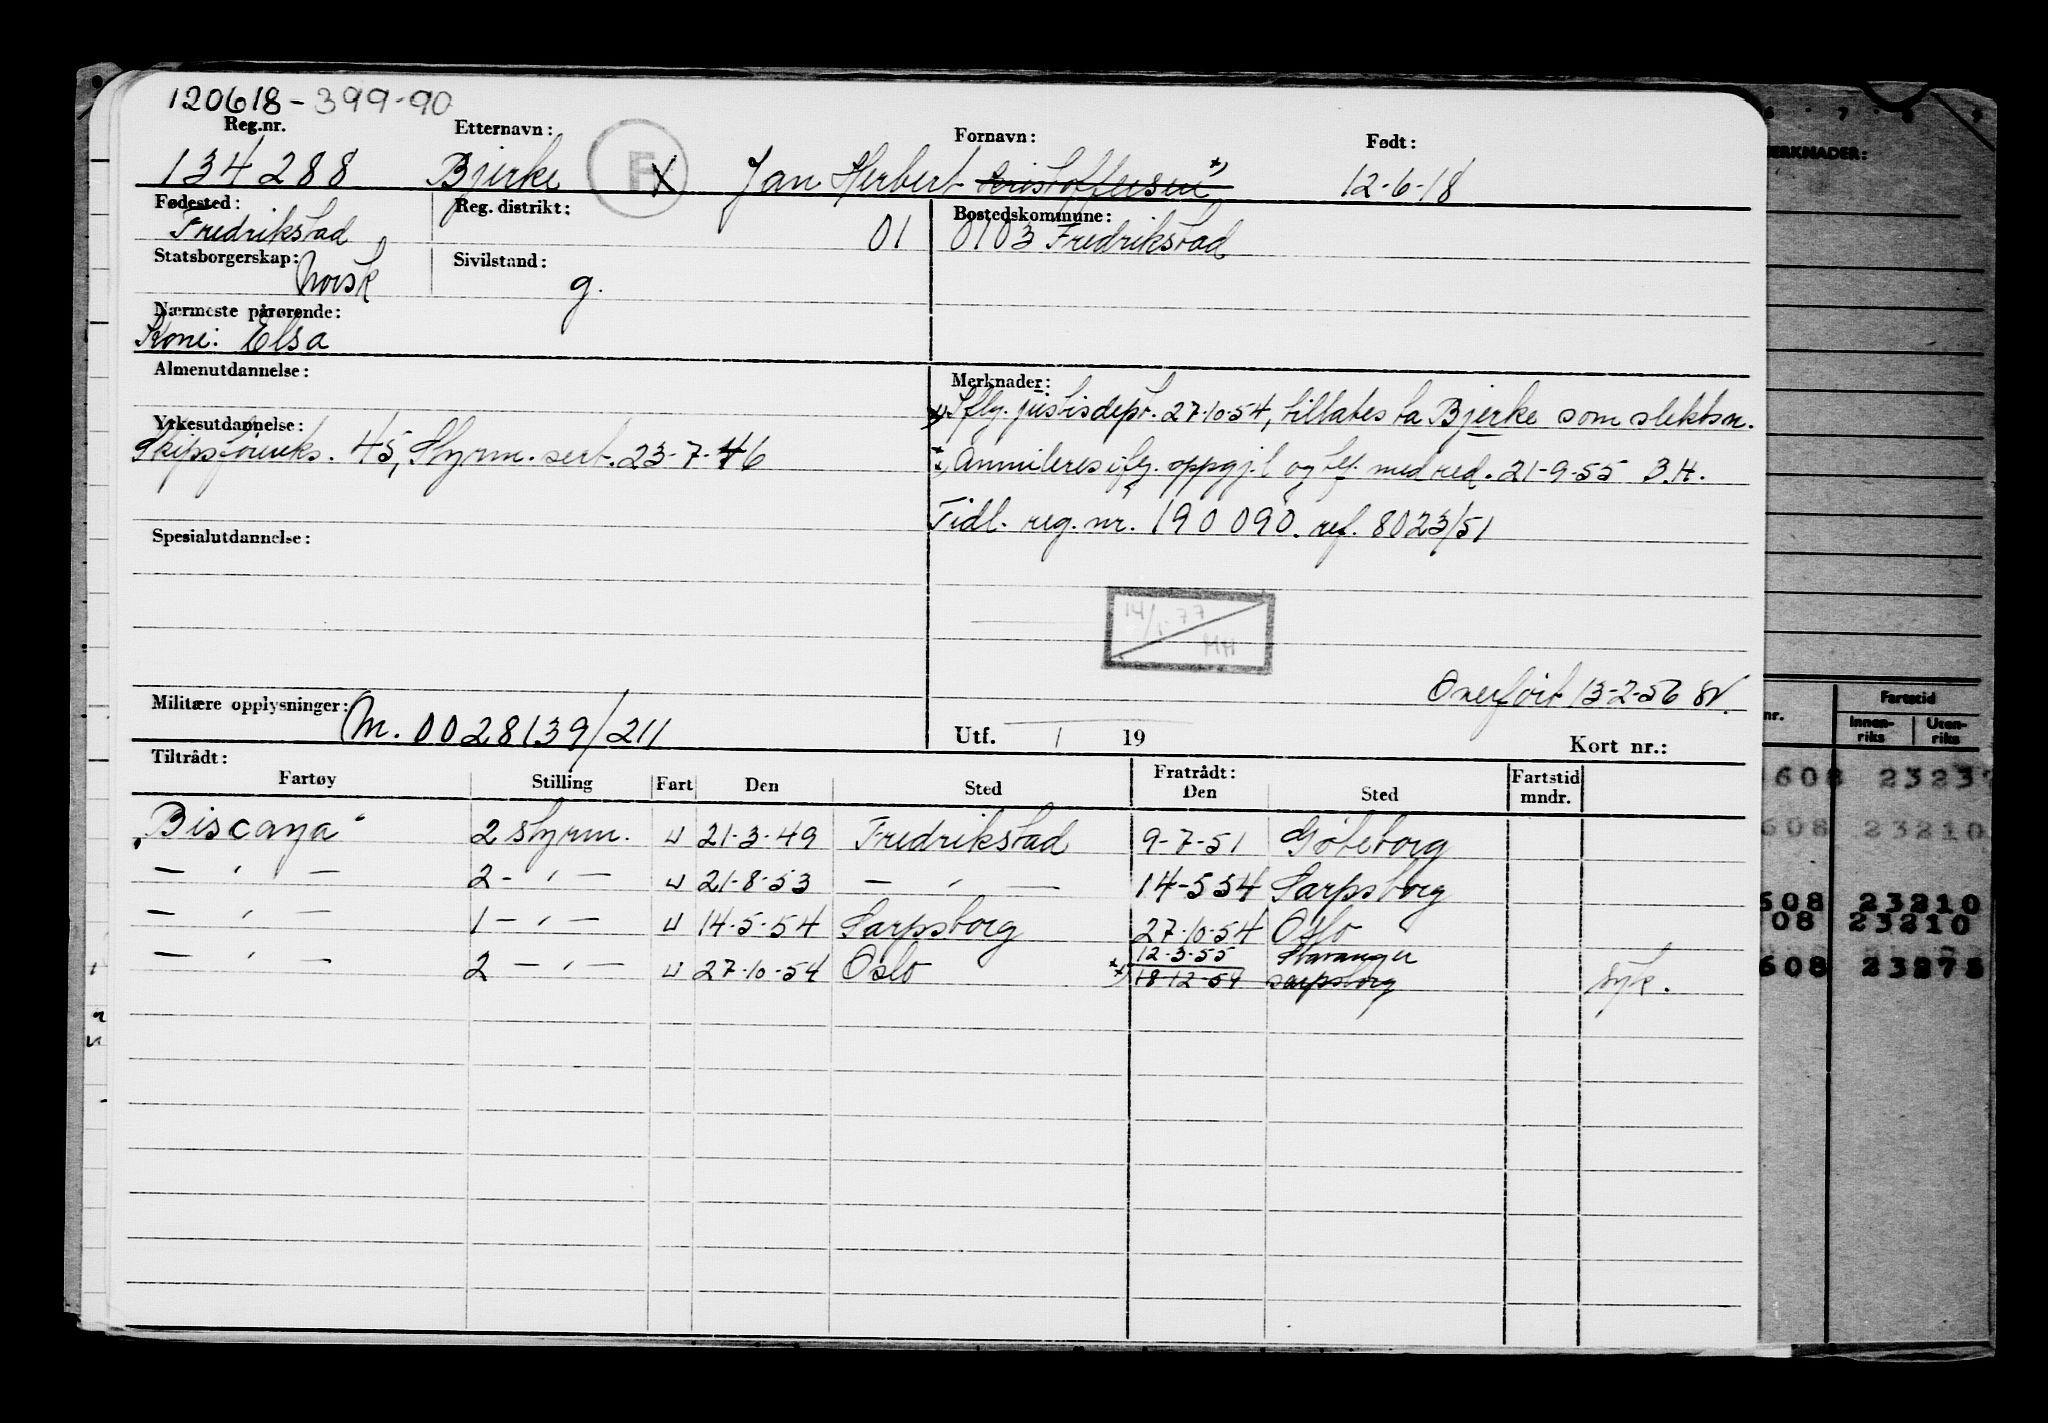 120618-399-90
Reg.nr. Etternavn: Fornavn: Født:
134288 Bjerke F X Jan Herbert Kristoffersen x) 12-6-18
Fødested: Reg. distrikt: Bostedskommune:
Fredrikstad 01 0103 Fredrikstad
Statsborgerskap: Sivilstand:
Norsk g.
Nærmeste pårørende:
Kone: Elsa
Almenutdannelse: Merknader:
x) Iflg. justisdept. 27-10-54, tillates ta Bjerke som slektsn.
Yrkesutdannelse:
Skipsførereks. 45, Styrm. sert. 23-7-46
Annuleres iflg. oppgj. og tlf. med red. 21-9-55 B.H.
Tidl. reg. nr. 190 090. ref. 8023/51
Spesialutdannelse:
14/1-77
MH
Overført 13-2-56
Militære opplysninger: M. 0028139/211
Utf. / 19 Kort nr.:
Tiltrådt: Fratrådt:
Fartøy Stilling Fart Den Sted Den Sted Fartstid mndr.
"Biscaya" 2 styrm. u 21-3-49 Fredrikstad 9-7-51 Göteborg
— " — 2 - " — u 21-8-53 — " — 14-5 54 Sarpsborg
— " — 1 — " — u 14-5-54 Sarpsborg 27-10-54 Oslo
12-3-55 Stavanger
— " — 2 — " — u 27-10-54 Oslo 18-12-54 Sarpsborg syk.
6 7 8 9
MERKNADER:
nr. Fartstid
Innen-riks Uten-riks
608 2323
608 23210
608 23210
08 23210
608 23273